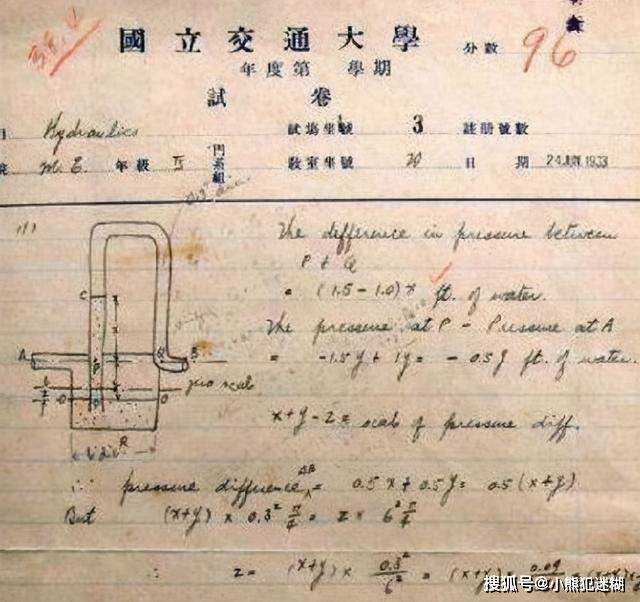 國立交通大學
分數 96
年度第 學期
試卷
Hydraulics
試場坐號 3 註册號數
M. E. 年級 IV 門系組
教室坐號 20 日期 24 JUN 1933
(1)
The difference in pressure between
P & Q
= (1.5 - 1.0) x ft. of water.
The pressure at P - Pressure at A
= -1.5y + 1y = - 0.5y ft. of water.
C
A
B
P
zero scale
O
O
R
x+y-z = scale of pressure diff.
∴ pressure difference AB = 0.5x + 0.5y = 0.5(x+y)
But (x+y) x 0.3² π/4 = z x 6² π/4
∴ z = (x+y) x 0.3²/6² = (x+y) x 0.09
搜狐号@小熊犯迷糊